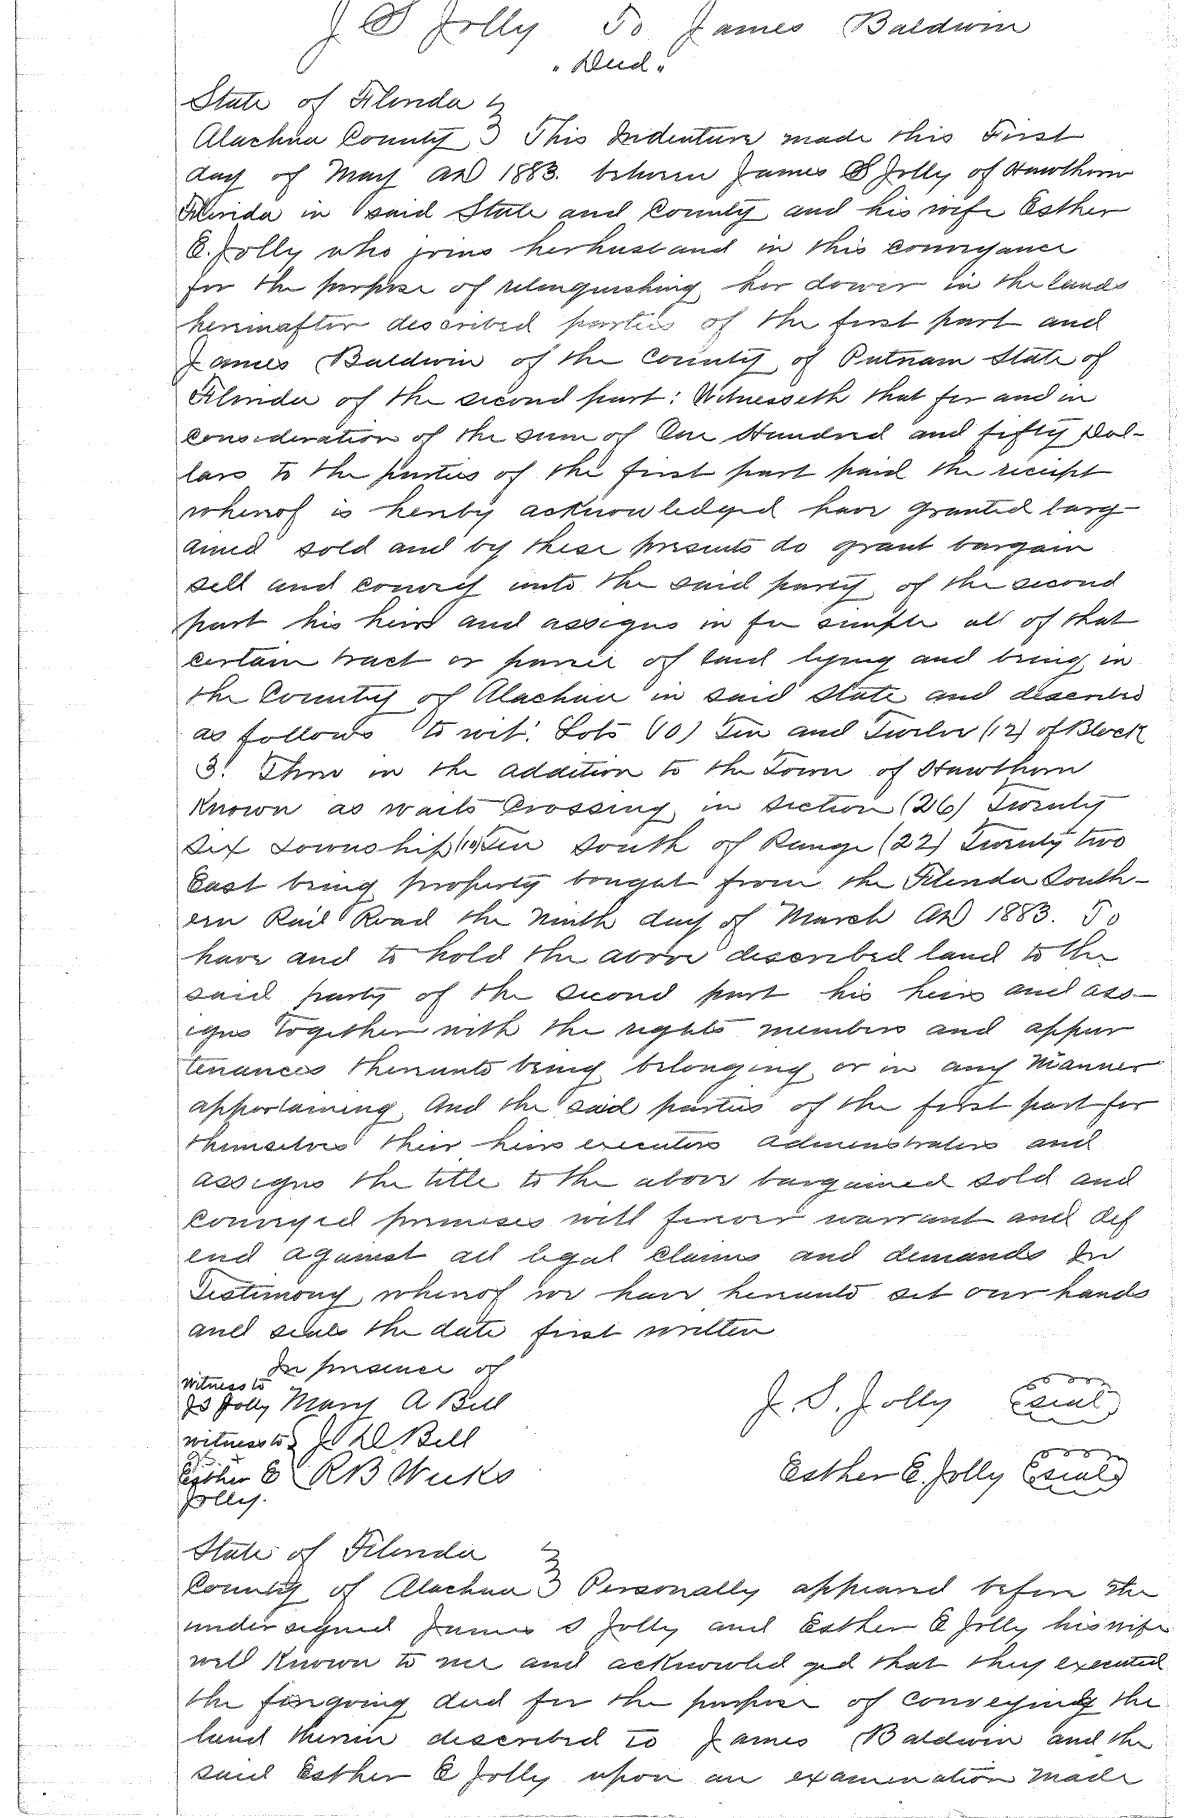 J S Jolly To James Baldwin
"Deed"
State of Florida }
Alachua County } This Indenture made this First
day of May AD 1883. between James S Jolly of Hawthorn
Florida in said State and County and his wife Esther
E. Jolly who joins her husband in this conveyance
for the purpose of relenquishing her dower in the lands
hereinafter described parties of the first part and
James Baldwin of the County of Putnam State of
Florida of the second part: Witnesseth that for and in
consideration of the sum of One Hundred and fifty Dol-
lars to the parties of the first part paid the receipt
whereof is hereby acknowledged have granted barg-
ained sold and by these presents do grant bargain
sell and convey unto the said party of the second
part his heirs and assigns in fee simple all of that
certain tract or parcel of land lying and being in
the County of Alachua in said State and described
as follows to wit: Lots (10) Ten and Twelve (12) of Block
3. Three in the addition to the Town of Hawthorn
Known as Waits Crossing in Section (26) Twenty
six Township (10) Ten South of Range (22) Twenty two
East being property bought from the Florida South-
ern Rail Road the Ninth day of March AD 1883. To
have and to hold the above described land to the
said party of the second part his heirs and ass-
igns together with the rights members and appur
tenances thereunto being belonging or in any manner
appertaining And the said parties of the first part for
themselves their heirs executors administrators and
assigns the title to the above bargained sold and
conveyed premises will forever warrant and def
end against all legal claims and demands In
Testimony whereof we have hereunto set our hands
and seals the date first written
In presence of
witness to
JS Jolly Mary A Bell J. S. Jolly (seal)
witness to { J D Bell
Esther E { R B Weeks Esther E. Jolly (seal)
Jolly.
State of Florida }
County of Alachua } Personally appeared before the
undersigned James S Jolly and Esther E Jolly his wife
well Known to me and acknowledged that they executed
the foregoing deed for the purpose of conveying the
land therein described to James Baldwin and the
said Esther E Jolly upon an examination made